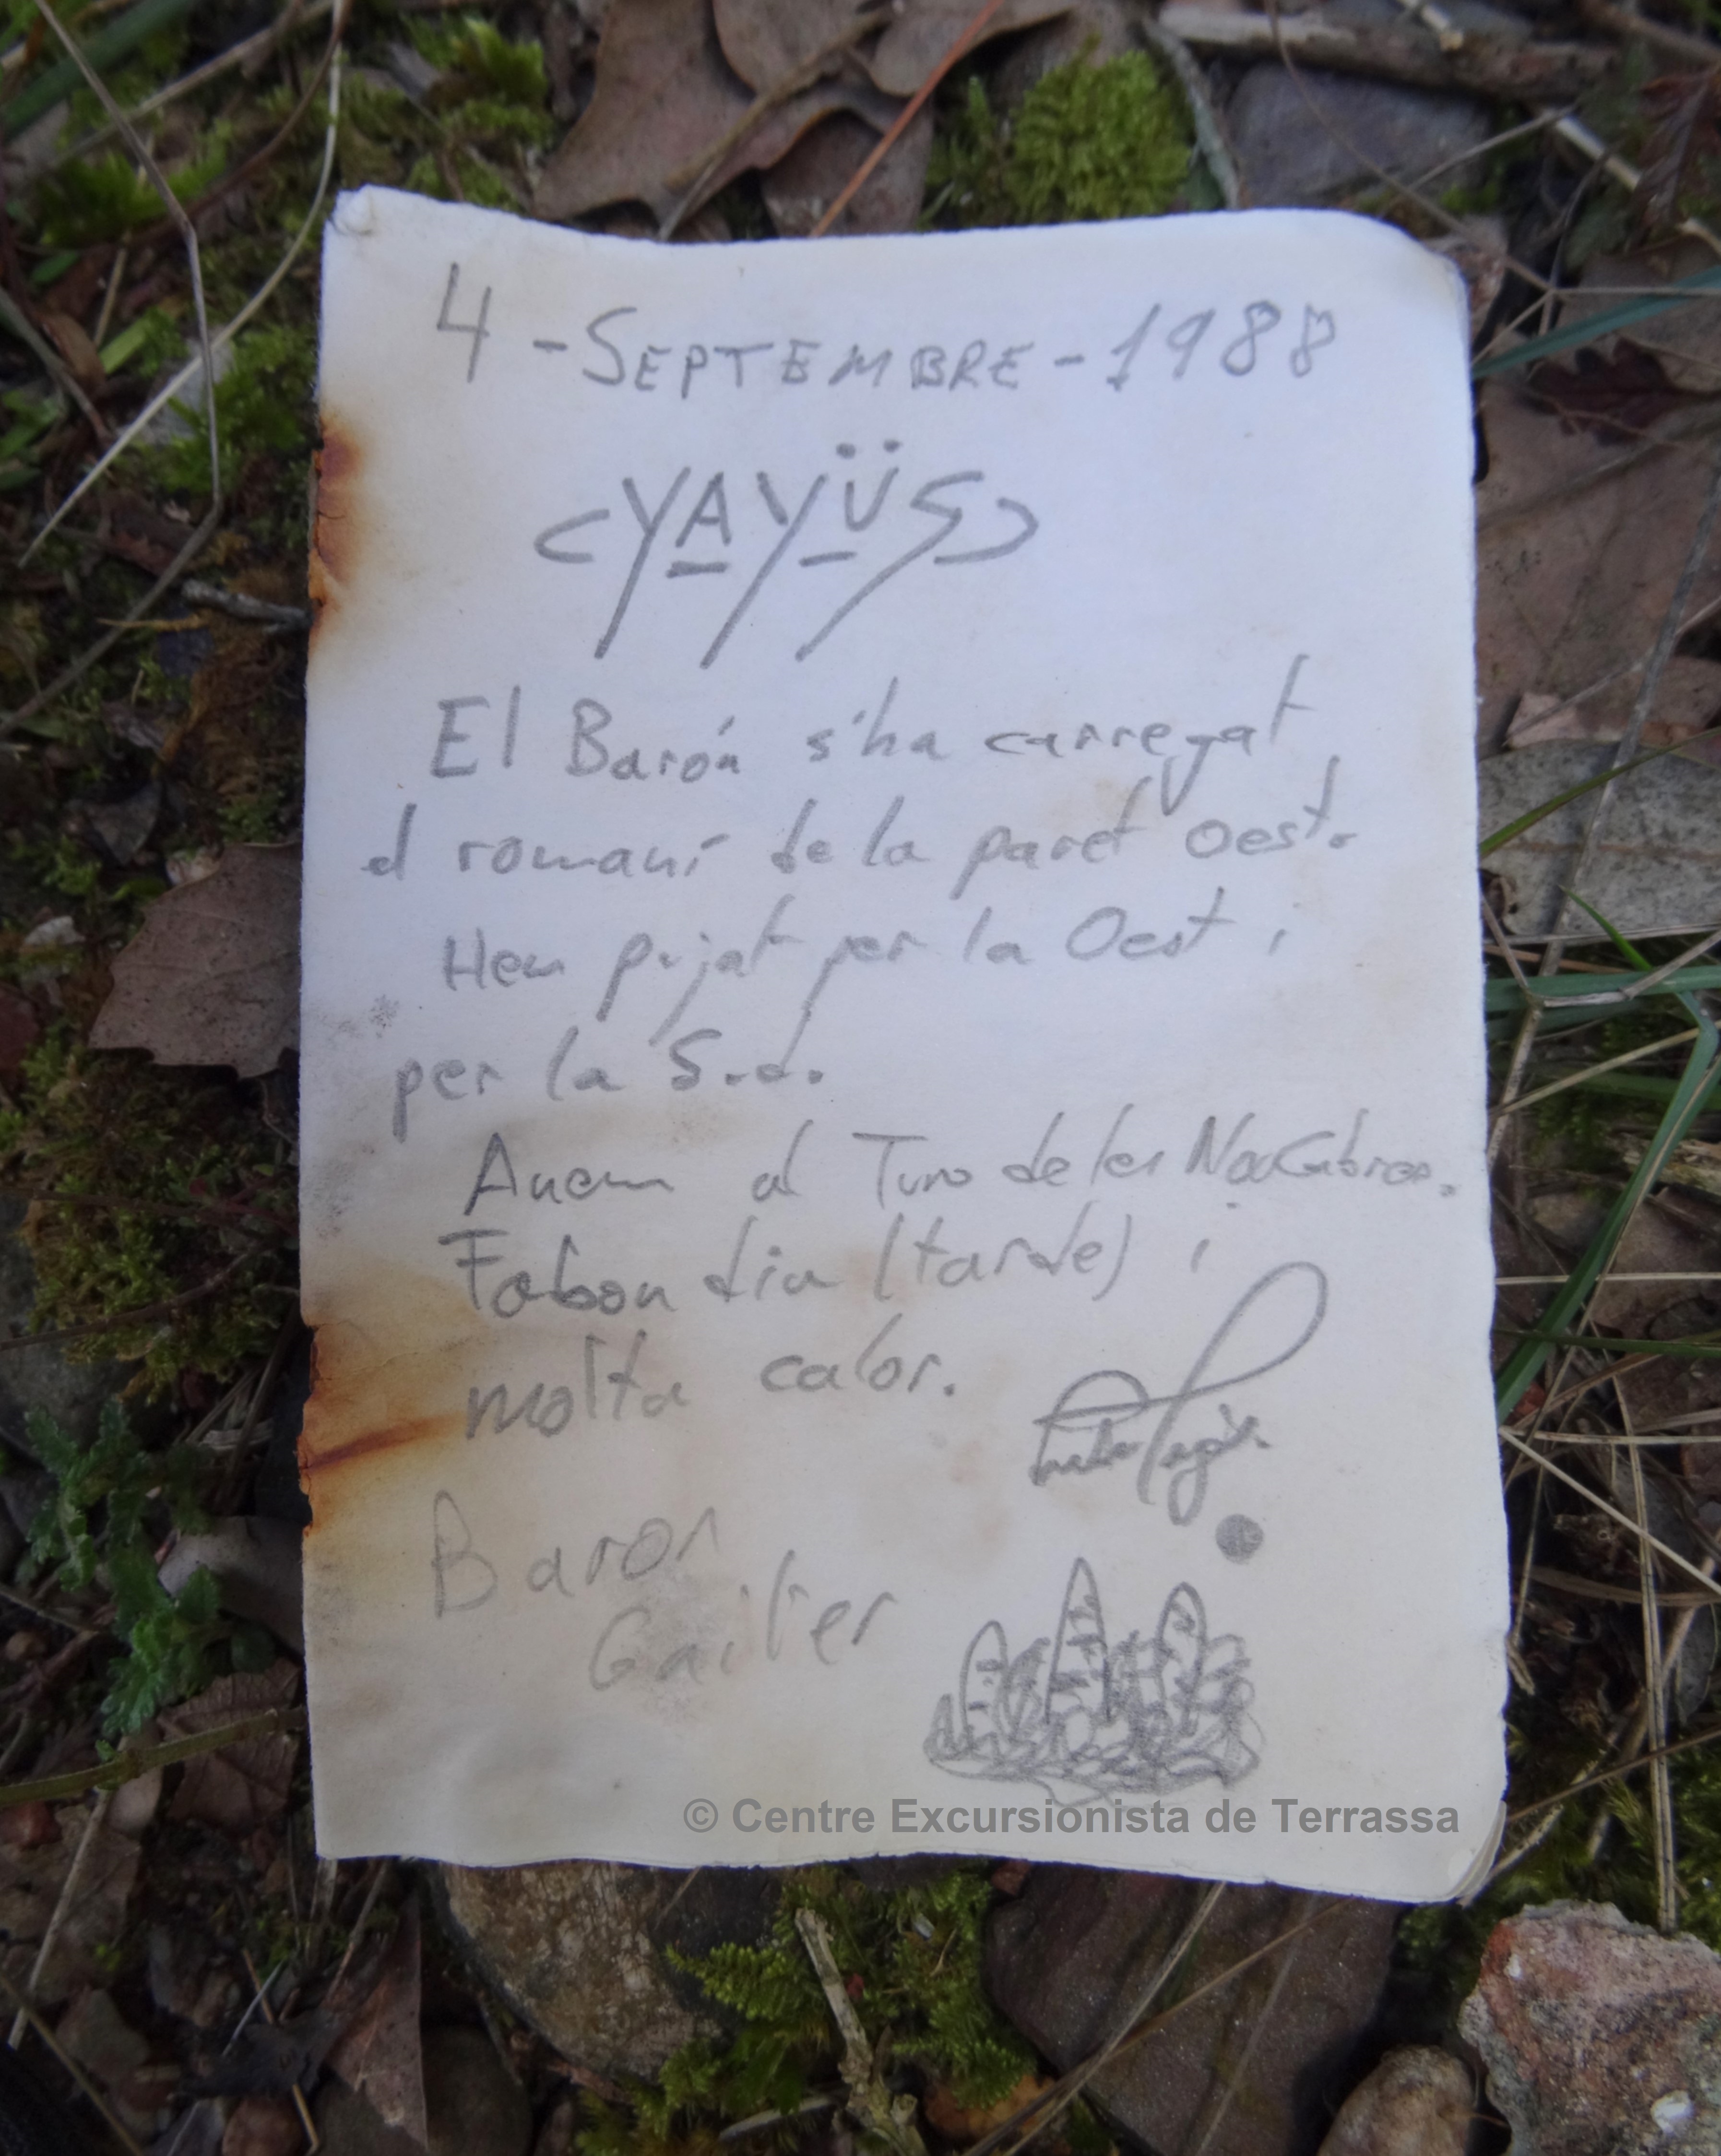 4-SEPTEMBRE-1988
YAYÜS
El Barón s'ha carregat
el romaní de la paret oest.
Hem pujat per la Oest i
per la Sud.
Anem al Turo de les Nou Cabres.
Fa bon dia (tarde) i
molta calor.
Baron
© Centre Excursionista de Terrassa